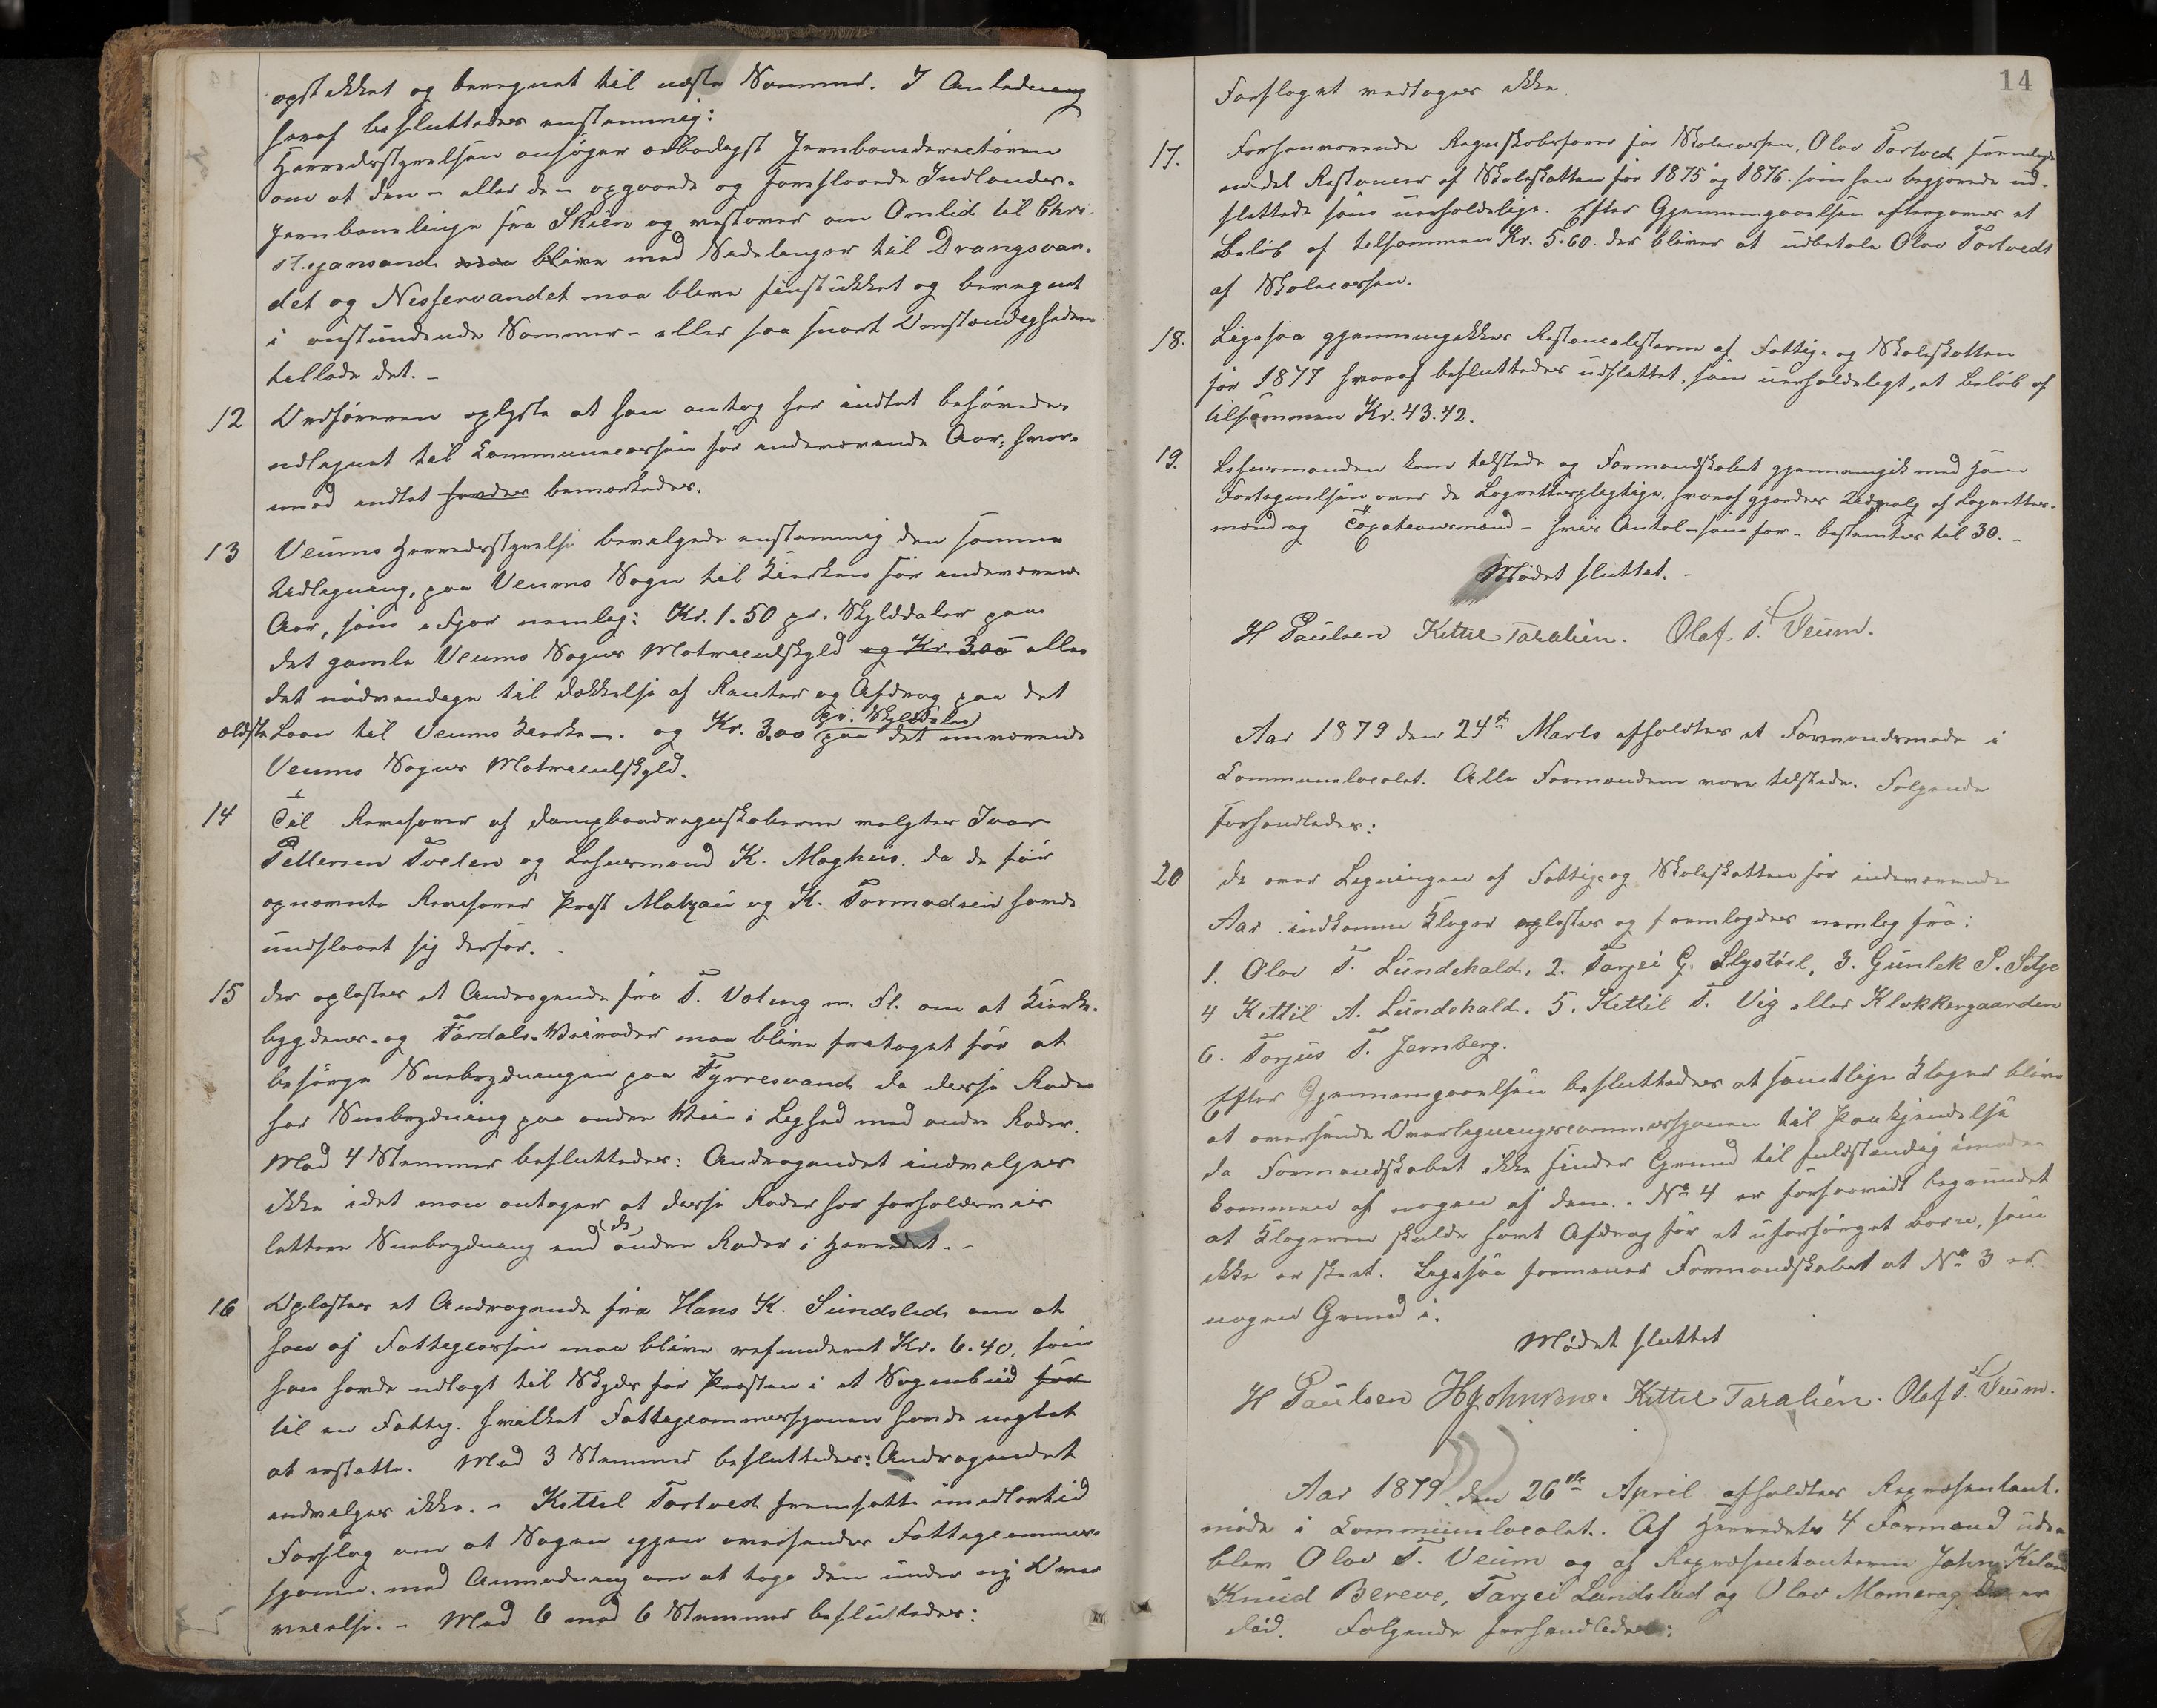 opstukket og beregnet til næste Sommer. I Anledning
heraf besluttedes enstemmig:
Herredsstyrelsen ansøger ærbødigst Jernbanedirectøren
om at den - eller de - opgaaede og foreslaaede Indlandes-
jernbanelinje fra Skien og vestover om Omlid til Chri-
stiansand maa blive med Sidelinjer til Drangsvan-
det og Nisservandet maa blive finstukket og beregnet
i anstundende Sommer - eller saa snart Omstændigheden
tillade det. -
12 Ordføreren oplyste at han antog her intet behøvedes
udlignet til Kommunecassen for indeværende Aar; hvor-
imod intet havdes bemærkedes.
13 Veums Herredsstyrelse bevilgede enstemmig den samme
Udligning, paa Veums Sogn til Kirken for indeværende
Aar, som i Fjor nemlig: Kr. 1.50 pr. Skylddaler paa
det gamle Veums Sogns Matriculskyld og Kr 3.00 eller
det nødvendige til Dækkelse af Renter og Afdrag paa det
ældste Laan til Veums Kirke -. og Kr. 3.00 pr. Skylddaler paa det nuværende
Veums Sogns Matriculskyld.
14 Til Revisorer af Dampbaadregnskaberne valgtes Ivar
Pettersen Tveten og Lehnsmand K. Moghus. da de før
opnævnte Revisorer Prest Malzau og K. Tormodsen havde
undslaaet sig derfor. -
15 Der oplæstes et Andragende fra T. Voling m. fl. om at Kirke-
bygdens- og Fardals-Veiroder maa blive fritaget for at
besørge Snebrydningen paa Fyrresvand da disse Roder
har Snebrydning paa anden Vei i Lighed med andre Roder.
Med 4 Stemmer besluttedes: Andragendet indvilges
ikke idet man antager at disse Roder har forholdsvis
lettere Snebrydning end de andre Roder i Herredet. -
16 Oplæstes et Andragende fra Hans K. Sundslid om at
han af Fattigcassen maa blive refunderet Kr. 6.40, som
han havde udlagt til Skyds for Præsten i et Sognebud for
til en Fattig. hvilket Fattigcommissionen havde negtet
at erstatte. Med 3 Stemmer besluttedes: Andragendet
indvilges ikke. - Kittil Tortvedt fremsatte imidlertid
Forslag om at Sagen igjen oversendes Fattigcommis-
sionen. med Anmodning om at tage den under ny Over
veielse. - Med 6 mod 6 Stemmer besluttedes:
14
Forslaget vedtages ikke.
17. Forhenværende Regnskabsfører for Skolecassen, Olav Tortvedt fremlagde
endel Restancer af Skoleskatten for 1875 og 1876. som han begjærede ud-
slettede som uerholdelige. Efter Gjennemgaaelsen eftergaves et
Beløb af tilsammen Kr. 5.60. der bliver at udbetale Olav Tortvedt
af Skolecassen.
18. Ligesaa gjennemgikkes Restancelisterne af Fattig- og Skoleskatten
for 1877 hvoraf besluttedes udslettet, som uerholdeligt, et Beløb af
tilsammen Kr. 43.42.
19. Lehnsmanden kom tilstede og Formandskabet gjennemgik med ham
Fortegnelsen over de Lagrettespligtige. hvoraf gjordes Udvalg af Lagrettes-
mænd og Taxationsmænd - hvis Antal - som før - bestemtes til 30. -
Mødet sluttet. -
H Paulsen Kittil Taralien. Olaf T. Veum.
Aar 1879 den 24de Marts afholdtes et Formandsmøde i
Kommunelocalet. Alle Formændene vare tilstede. Følgende
forhandledes:
20 De over Ligningen af Fattig- og Skoleskatten for indeværende
Aar indkomne Klager oplæstes og fremlagdes nemlig fra:
1. Olav T. Lundehald, 2. Tarjei G. Slystøl, 3. Gunlek S. Setje
4 Kittil A. Lundehald. 5. Kittil T. Vig eller Klokkergaarden
6. Torjus T. Jernberg.
Efter Gjennemgaaelsen besluttedes at samtlige Klager bliver
at oversende Overligningscommissionen til Paakjendelse
da Formandskabet ikke finder Grund til fuldstændig imøde-
kommen af nogen af dem. - No 4 er forsaavidt begrundet
at Klageren skulde havt Afdrag for et uforsørget Barn, som
ikke er skeet. Ligesaa formener Formandskabet at No 3 er
nogen Grund i.
Mødet sluttet
H Paulsen HJohnsen. Kittil Taralien. Olaf T. Veum.
Aar 1879 den 26de April afholdtes Repræsentant-
møde i Kommunelocalet. Af Herredets 4 Formænd ude-
blev Olav T. Veum og af Repræsentanterne John Kiland
Knud Bereve, Tarjei Lundslid og Olav Momrag er
død. Følgende forhandledes: